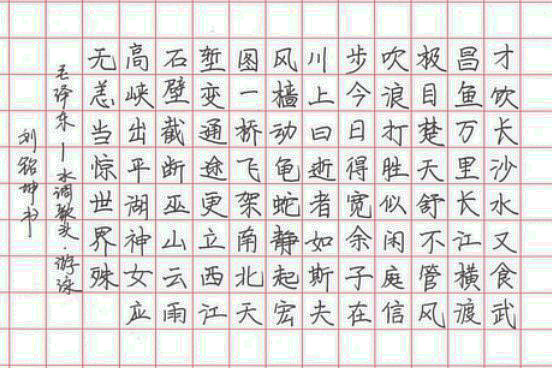 才饮长沙水又食武
昌鱼万里长江横渡
极目楚天舒不管风
吹浪打胜似闲庭信
步今日得宽余子在
川上曰逝者如斯夫
风樯动龟蛇静起宏
图一桥飞架南北天
堑变通途更立西江
石壁截断巫山云雨
高峡出平湖神女应
无恙当惊世界殊
毛泽东—水调歌头·游泳
刘铭坤书